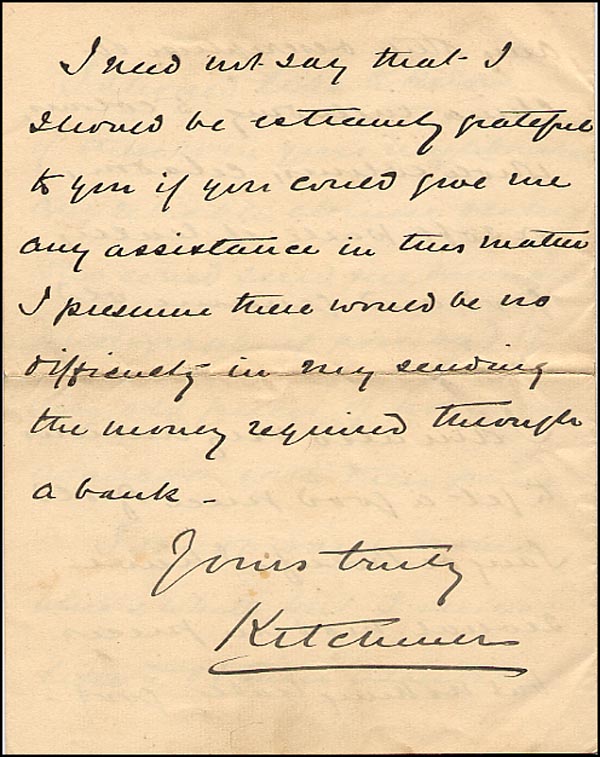 I need not say that I
should be extremely grateful
to you if you could give me
any assistance in this matter
I presume there would be no
difficulty in my sending
the money required through
a bank -
Yours truly
Kitchener